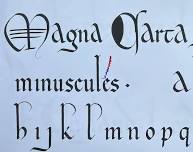 Magna Carta
minuscules. a
h i j k l m n o p q